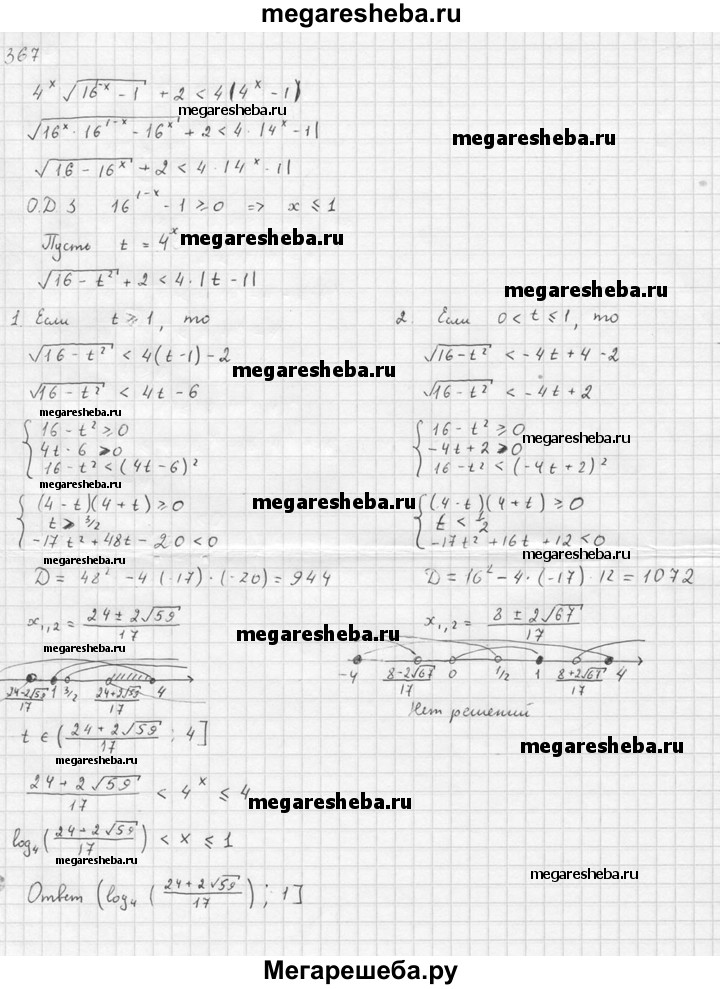 megaresheba.ru
367
4^x √(16^-x - 1) + 2 < 4|4^x - 1|
megaresheba.ru
√(16^x · 16^(1-x) - 16^x) + 2 < 4 · |4^x - 1|
megaresheba.ru
√(16 - 16^x) + 2 < 4 · |4^x - 1|
О.Д З 16^(1-x) - 1 ≥ 0 => x ≤ 1
Пусть t = 4^x
megaresheba.ru
√(16 - t²) + 2 < 4 · |t - 1|
megaresheba.ru
1. Если t ≥ 1, то
√(16 - t²) < 4(t-1) - 2
megaresheba.ru
√(16 - t²) < 4t - 6
megaresheba.ru
{ 16 - t² ≥ 0
4t - 6 > 0
16 - t² < (4t - 6)²
megaresheba.ru
{ (4 - t)(4 + t) ≥ 0
t > 3/2
-17t² + 48t - 20 < 0
megaresheba.ru
D = 48² - 4(-17)·(-20) = 944
x₁,₂ = (24 ± 2√59)/17
megaresheba.ru
(24-2√59)/17 1 3/2 (24+2√59)/17 4
t ∈ ((24 + 2√59)/17 ; 4]
(24 + 2√59)/17 < 4^x ≤ 4
megaresheba.ru
log₄((24 + 2√59)/17) < x ≤ 1
megaresheba.ru
Ответ (log₄((24 + 2√59)/17) ; 1]
megaresheba.ru
2. Если 0 < t ≤ 1, то
√(16 - t²) < -4t + 4 - 2
√(16 - t²) < -4t + 2
{ 16 - t² ≥ 0
-4t + 2 > 0
megaresheba.ru
16 - t² < (-4t + 2)²
megaresheba.ru
{ (4 - t)(4 + t) ≥ 0
t < 1/2
-17t² + 16t + 12 < 0
megaresheba.ru
D = 16² - 4·(-17)·12 = 1072
x₁,₂ = (8 ± 2√67)/17
-4 (8-2√67)/17 0 1/2 1 (8+2√67)/17 4
Нет решений
megaresheba.ru
megaresheba.ru
Мегарешеба.ру